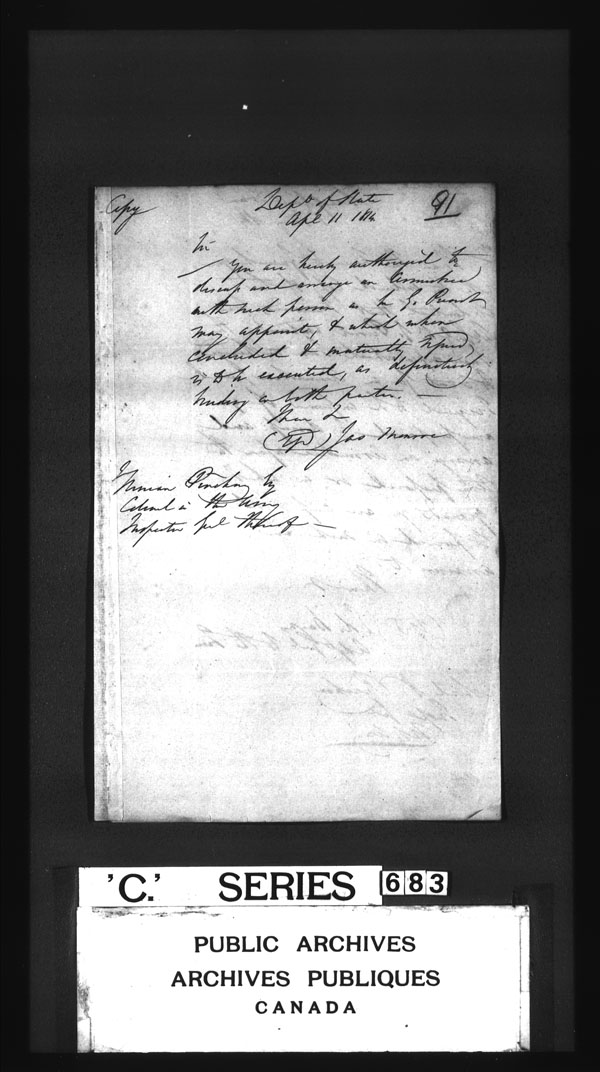 Copy
Dept of State
91
Apl 11 1814
Sir
You are hereby authorized to
discuss and arrange an Armistice
with such person as Sr G. Prevost
may appoint, & which when
concluded & mutually signed
is to be executed, as definitively
binding on both parties. —
(Sigd) Jas Monroe
Ninian Pinckney Esq
Colonel in the Army
Inspector Genl
'C.' SERIES 683
PUBLIC ARCHIVES
ARCHIVES PUBLIQUES
CANADA